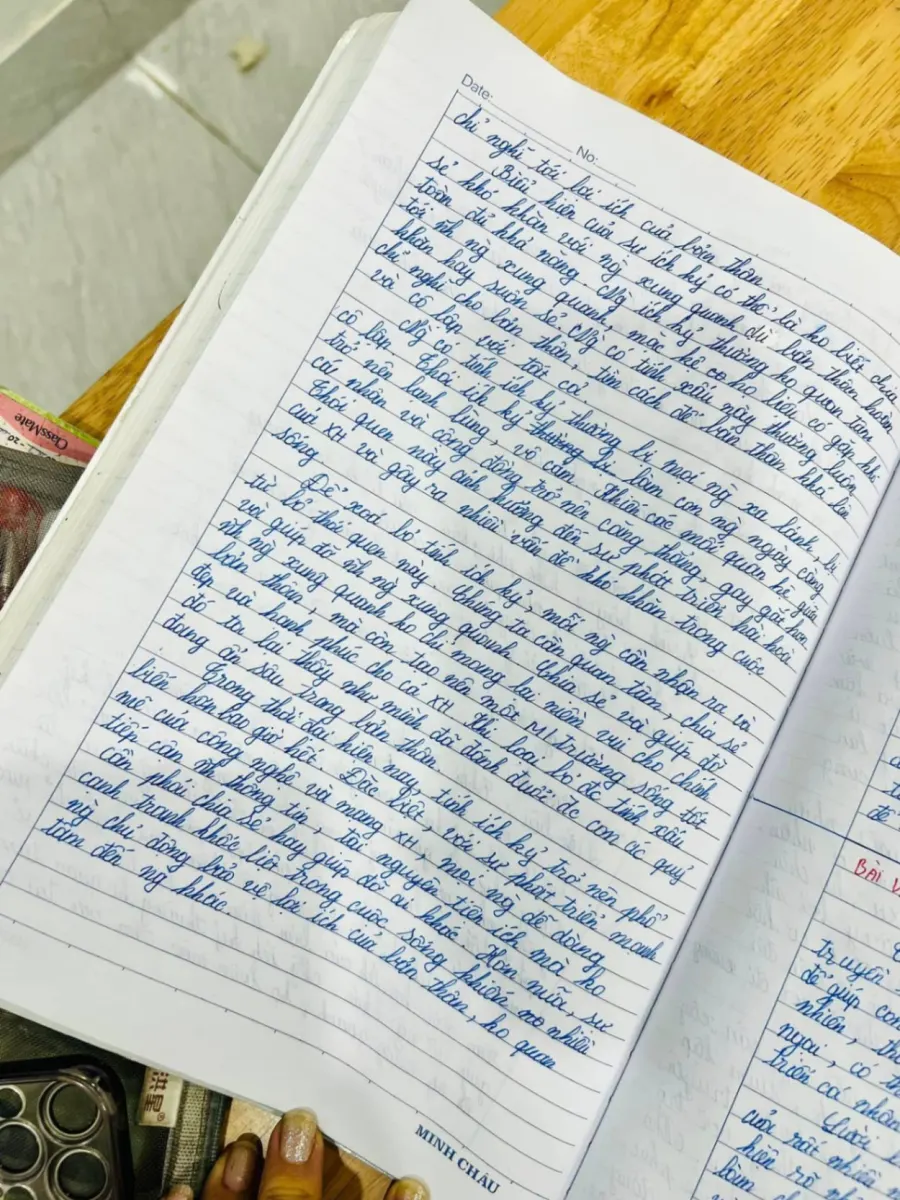 Date:
No:
chỉ nghĩ tới lợi ích của bản thân.
Biểu hiện của sự ích kỷ có thể là họ biết chia
sẻ khó khăn với ng xung quanh dù bản thân hoàn
toàn đủ khả năng. Ng ích kỷ thường ko quan tâm
tới nh ng xung quanh, mặc kệ họ có gặp khó
khăn hay suôn sẻ. Ng có tính xấu này thường luôn
chỉ nghĩ cho bản thân, tìm cách để bản thân
và cô lập với tất cả.
Ng có tính ích kỷ thường bị mọi ng xa lánh, bị
cô lập. Thói ích kỷ thường làm con ng ngày càng
trở nên lạnh lùng, vô cảm. Khiến các mối quan hệ giữa
cá nhân và cộng đồng trở nên căng thẳng, gay gắt hơn.
Thói quen này ảnh hưởng đến sự phát triển hài hoà
của XH và gây ra nhiều vấn đề khó khăn trong cuộc
sống.
Để xoá bỏ tính ích kỷ, mỗi ng cần nhận ra và
từ bỏ thói quen này. Chúng ta cần quan tâm, chia sẻ
và giúp đỡ nh ng xung quanh. Chia sẻ và giúp đỡ
nh ng xung quanh ko chỉ mang lại niềm vui cho chính
bản thân, mà còn tạo nên một môi trường sống tốt
đẹp và hạnh phúc cho cả XH. Khi loại bỏ đc tính xấu
đó, ta lại thấy như mình đã đánh đuổi đc con ác quỷ
đang ẩn sâu trong bản thân.
Trong thời đại hiện nay, tính ích kỷ trở nên phổ
biến hơn bao giờ hết. Đặc biệt, với sự phát triển mạnh
mẽ của công nghệ và mạng XH, mọi ng dễ dàng
tiếp cận nh thông tin, tài nguyên, tiện ích mà ko
cần phải chia sẻ hay giúp đỡ ai khác. Hơn nữa, sự
cạnh tranh khốc liệt trong cuộc sống khiến nhiều
ng chỉ động bảo vệ lợi ích của bản thân, ko quan
tâm đến ng khác.
MINH CHÂU
BÀI V
truyền
để giúp con
nhiên, th
ngại, có th
triển cá nhân
của rất nhiều
hiện rõ n
làm
ClassMate
洪星